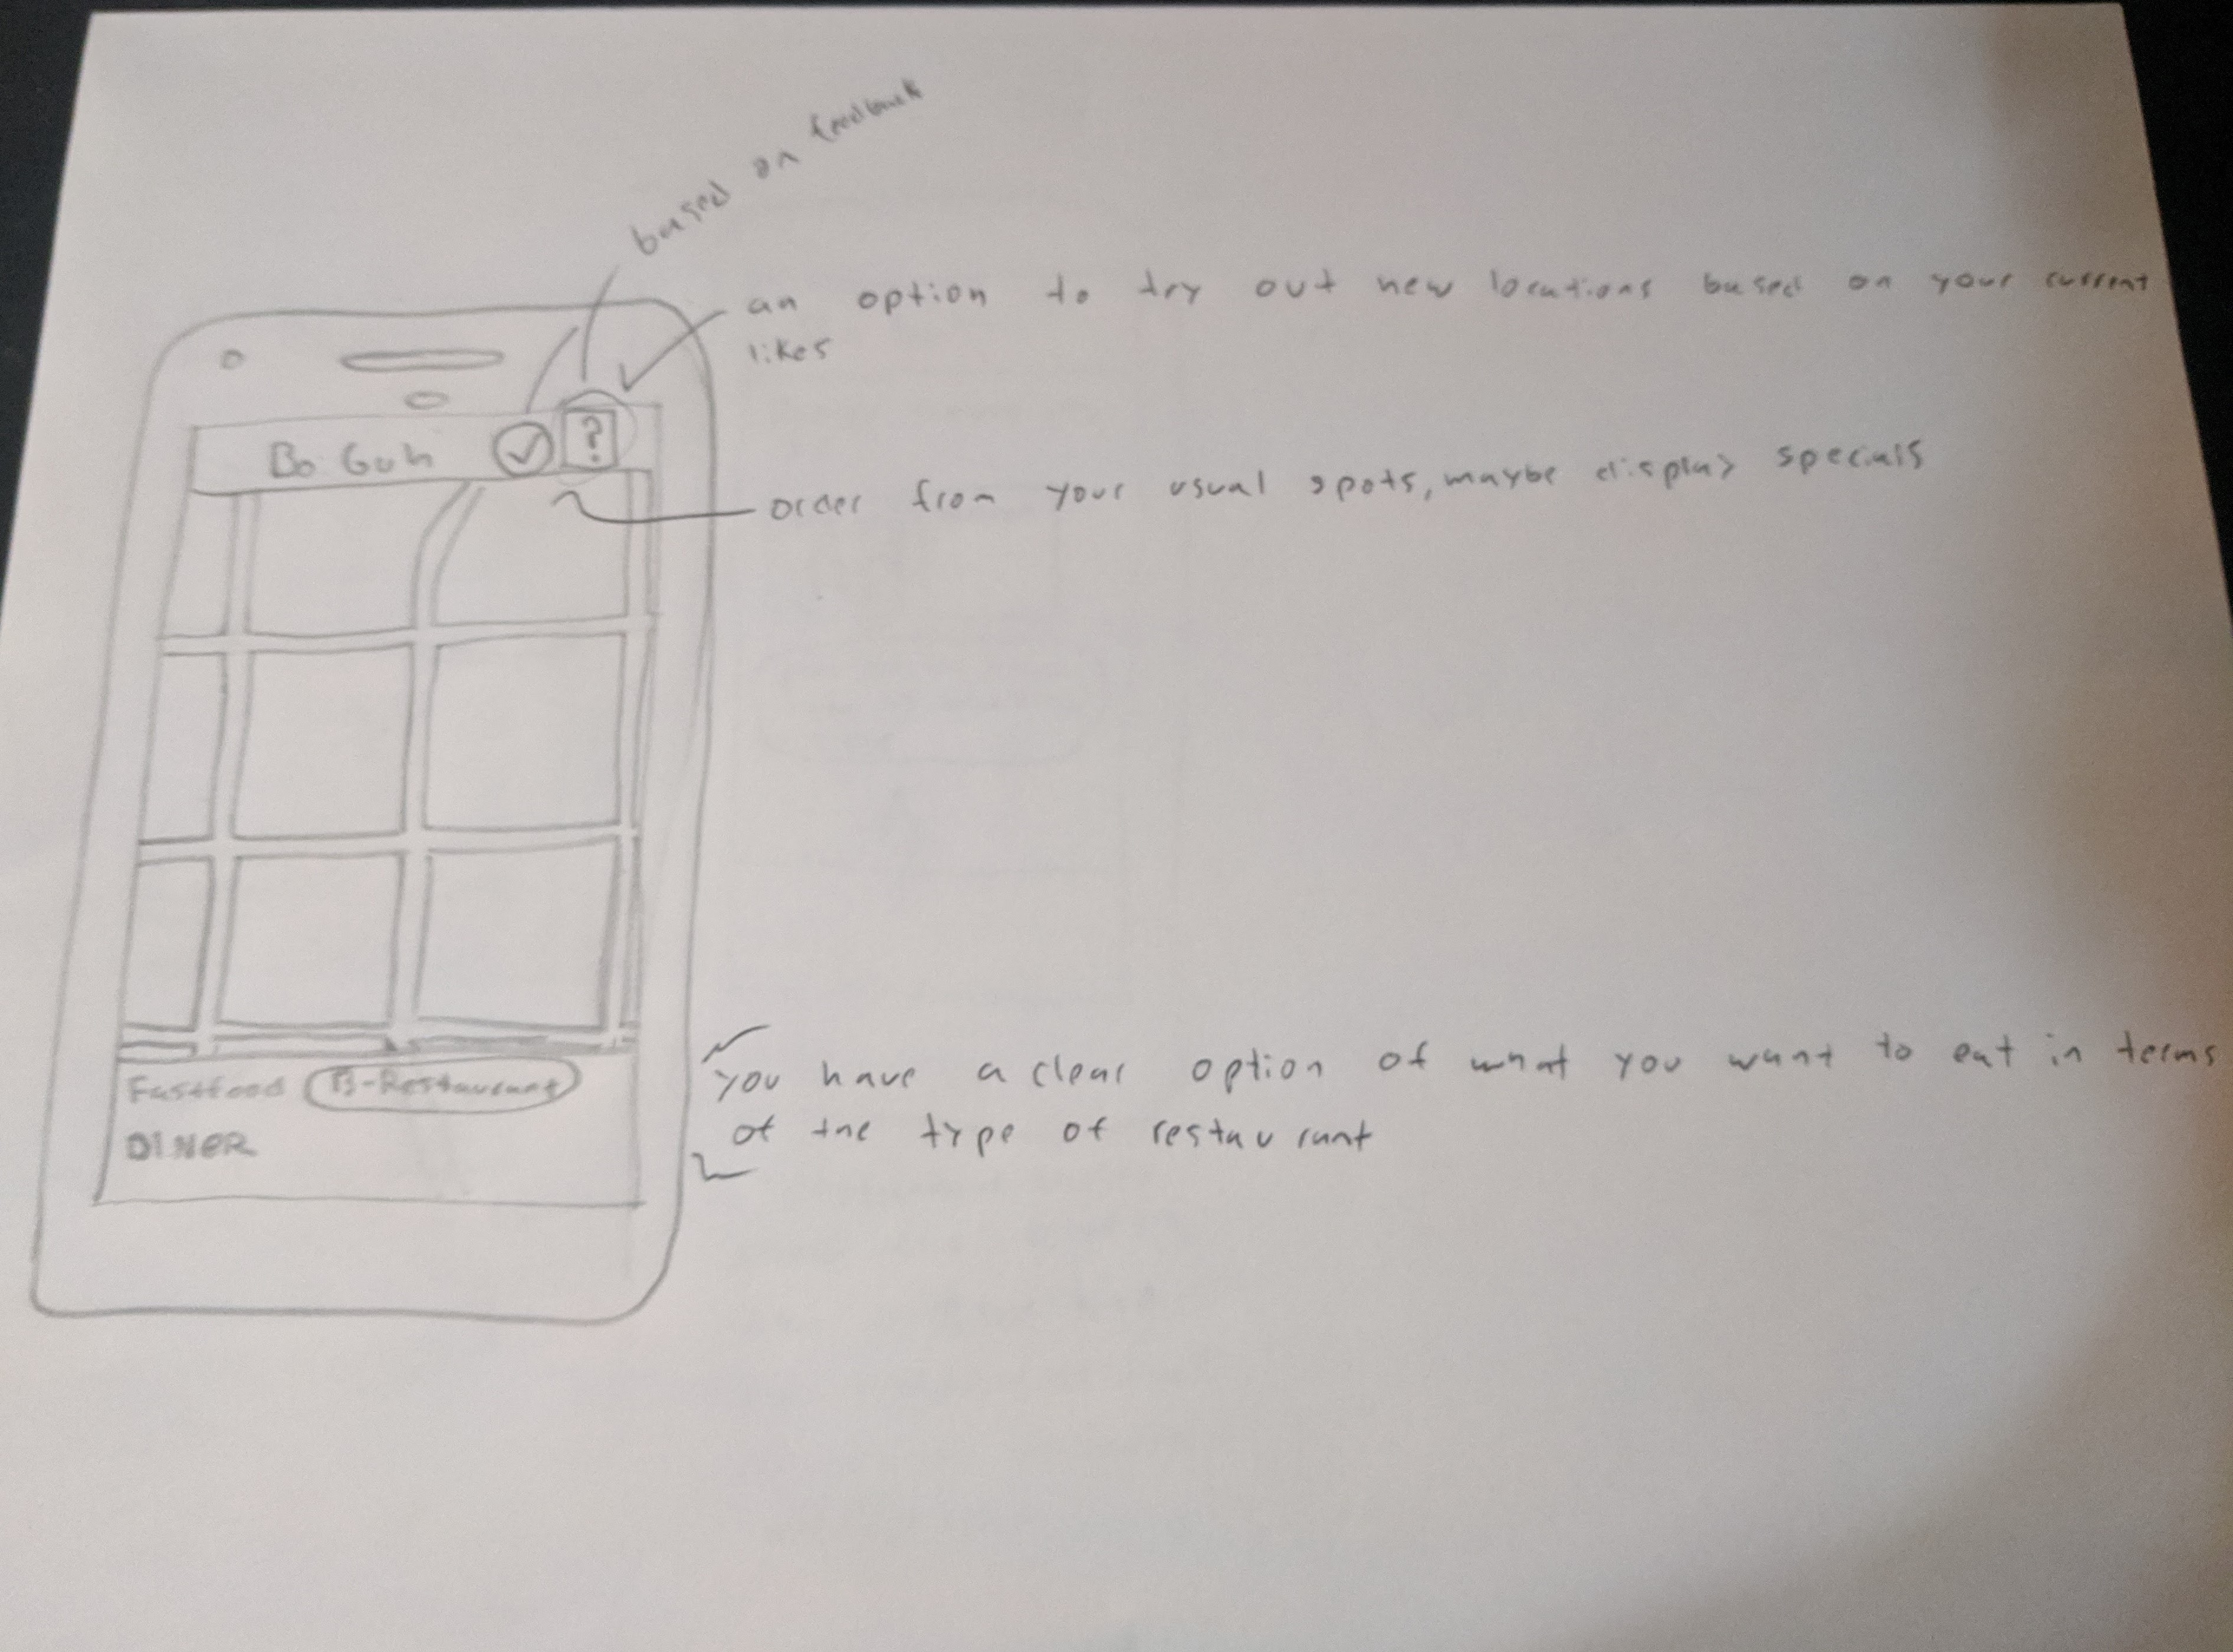 based on feedback
an option to try out new locations based on your current
likes
Bo Guh
?
order from your usual spots, maybe display specials
Fastfood B-Restaurant
DINER
you have a clear option of what you want to eat in terms
of the type of restaurant